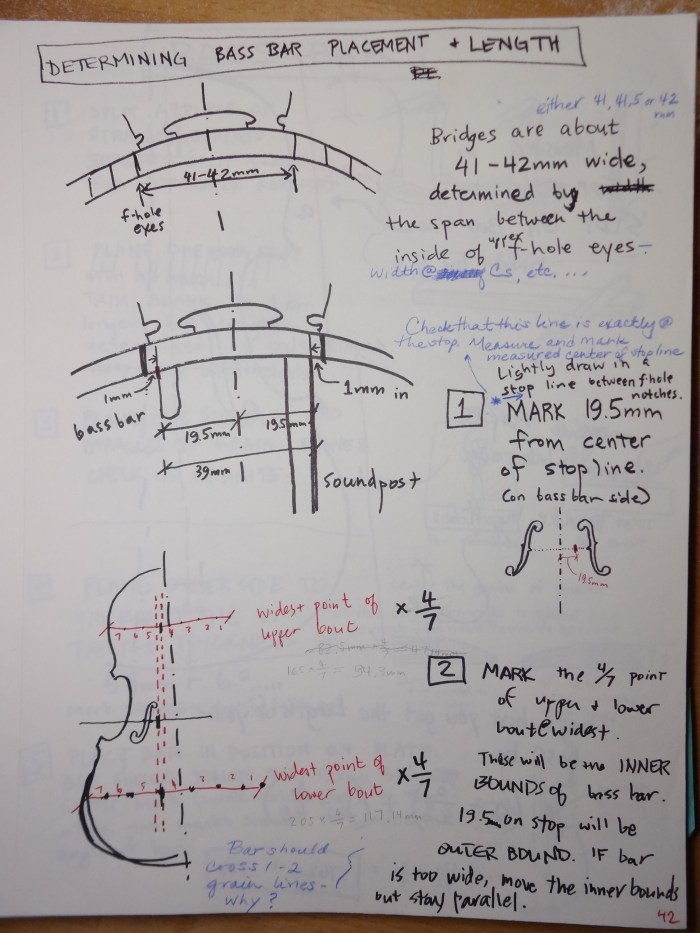 DETERMINING BASS BAR PLACEMENT + LENGTH
either 41, 41.5 or 42
mm
Bridges are about
41-42mm wide,
determined by
the span between the
inside of upper f-hole eyes-
width@ Cs, etc, ...
41-42mm
f-hole
eyes
1mm
1mm in
bass bar
19.5mm
19.5mm
39mm
soundpost
Check that this line is exactly @
the stop. Measure and mark
measured center of stopline
Lightly draw in a
stop line between f hole
notches.
1
MARK 19.5mm
from center
of stopline.
(on bass bar side)
19.5mm
7 6 5 4 3 2 1
widest point of
upper bout
x 4/7
165 x 4/7 = 94.3mm
2
MARK the 4/7 point
of upper + lower
bout @ widest.
These will be the INNER
BOUNDS of bass bar.
19.5 on stop will be
OUTER BOUND. IF bar
is too wide, move the inner bounds
but stay parallel.
7 6 5 4 3 2 1
widest point of
lower bout
x 4/7
205 x 4/7 = 117.14mm
Bar should
cross 1-2
grain lines-
why?
42